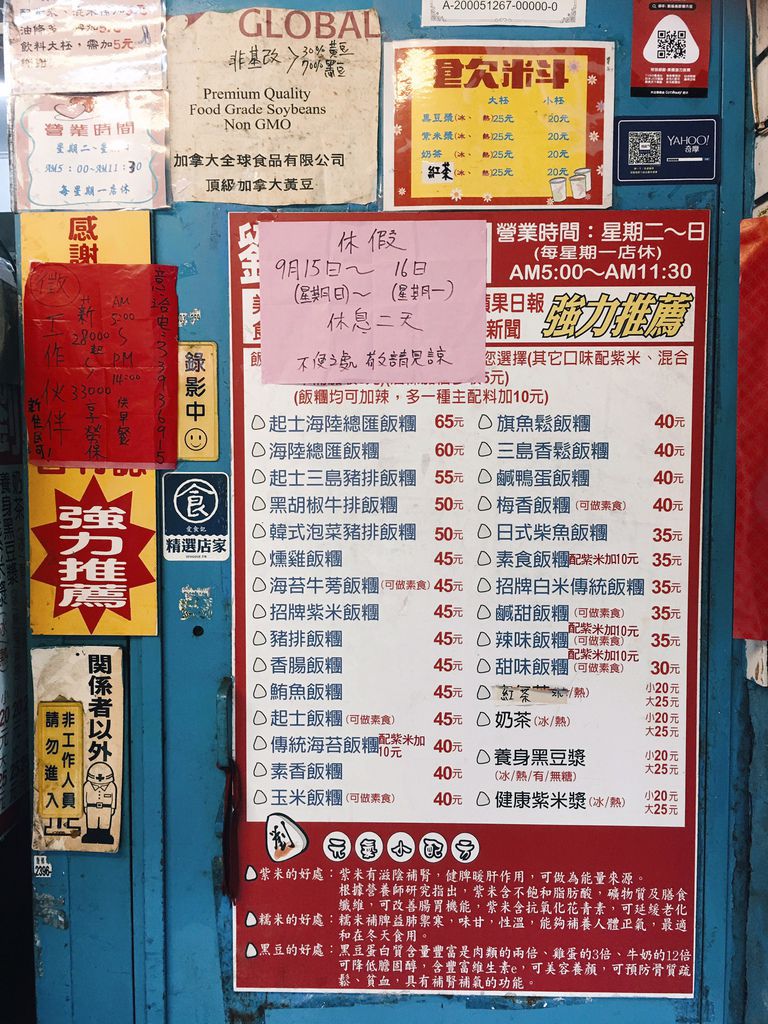 GLOBAL
非基改 > 30%黃豆
70%黑豆
Premium Quality
Food Grade Soybeans
Non GMO
加拿大全球食品有限公司
頂級加拿大黃豆
油條多，需加5元
飲料大杯，需加5元
謝謝
營業時間
AM5：00~AM11：30
每星期一店休
A-200051267-00000-0
飯米斗
大杯 小杯
黑豆漿(冰、熱)25元 20元
紫米漿(冰、熱)25元 20元
奶茶(冰、熱)25元 20元
紅茶(冰、熱)25元 20元
YAHOO!
奇摩
感謝
徵
工作伙伴
薪
28000
起
33000
享勞保
AM
5:00
PM
14:00
供早餐
新住民可!
錄影中
食
愛食記
精選店家
強力推薦
關係者以外
非工作人員
請勿進入
2396
休假
9月15日～ 16日
(星期日)～ (星期一)
休息二天
不便之處 敬請見諒
營業時間：星期二～日
(每星期一店休)
AM5:00～AM11:30
蘋果日報
新聞
強力推薦
您選擇(其它口味配紫米、混合
(飯糰均可加辣，多一種主配料加10元)
起士海陸總匯飯糰 65元
海陸總匯飯糰 60元
起士三島豬排飯糰 55元
黑胡椒牛排飯糰 50元
韓式泡菜豬排飯糰 50元
燻雞飯糰 45元
海苔牛蒡飯糰(可做素食) 45元
招牌紫米飯糰 45元
豬排飯糰 45元
香腸飯糰 45元
鮪魚飯糰 45元
起士飯糰(可做素食) 45元
傳統海苔飯糰配紫米加10元 40元
素香飯糰 40元
玉米飯糰(可做素食) 40元
旗魚鬆飯糰 40元
三島香鬆飯糰 40元
鹹鴨蛋飯糰 40元
梅香飯糰(可做素食) 40元
日式柴魚飯糰 35元
素食飯糰配紫米加10元 35元
招牌白米傳統飯糰 35元
鹹甜飯糰(可做素食) 35元
配紫米加10元
辣味飯糰(可做素食) 35元
配紫米加10元
甜味飯糰(可做素食) 30元
紅茶 /熱) 小20元
大25元
奶茶(冰/熱) 小20元
大25元
養身黑豆漿 小20元
(冰/熱/有/無糖) 大25元
健康紫米漿(冰/熱) 小20元
大25元
劉 元氣小配方
紫米的好處：紫米有滋陰補腎，健脾暖肝作用，可做為能量來源。
根據營養師研究指出，紫米含不飽和脂肪酸，礦物質及膳食
纖維，可改善腸胃機能，紫米含抗氧化花青素，可延緩老化
糯米的好處：糯米補脾益肺禦寒，味甘，性溫，能夠補養人體正氣，最適
和在冬天食用。
黑豆的好處：黑豆蛋白質含量豐富是肉類的兩倍、雞蛋的3倍、牛奶的12倍
可降低膽固醇，含豐富維生素e，可美容養顏，可預防骨質疏
鬆、貧血，具有補腎補氣的功能。